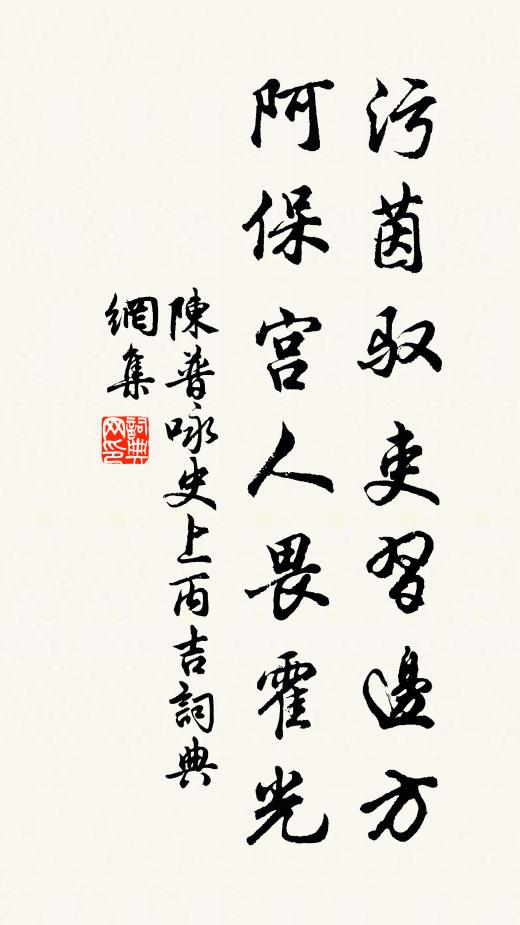 污茵驭吏習邊方
阿保宫人畏霍光
陳普咏史上丙吉詞典
網集
詞典
网印